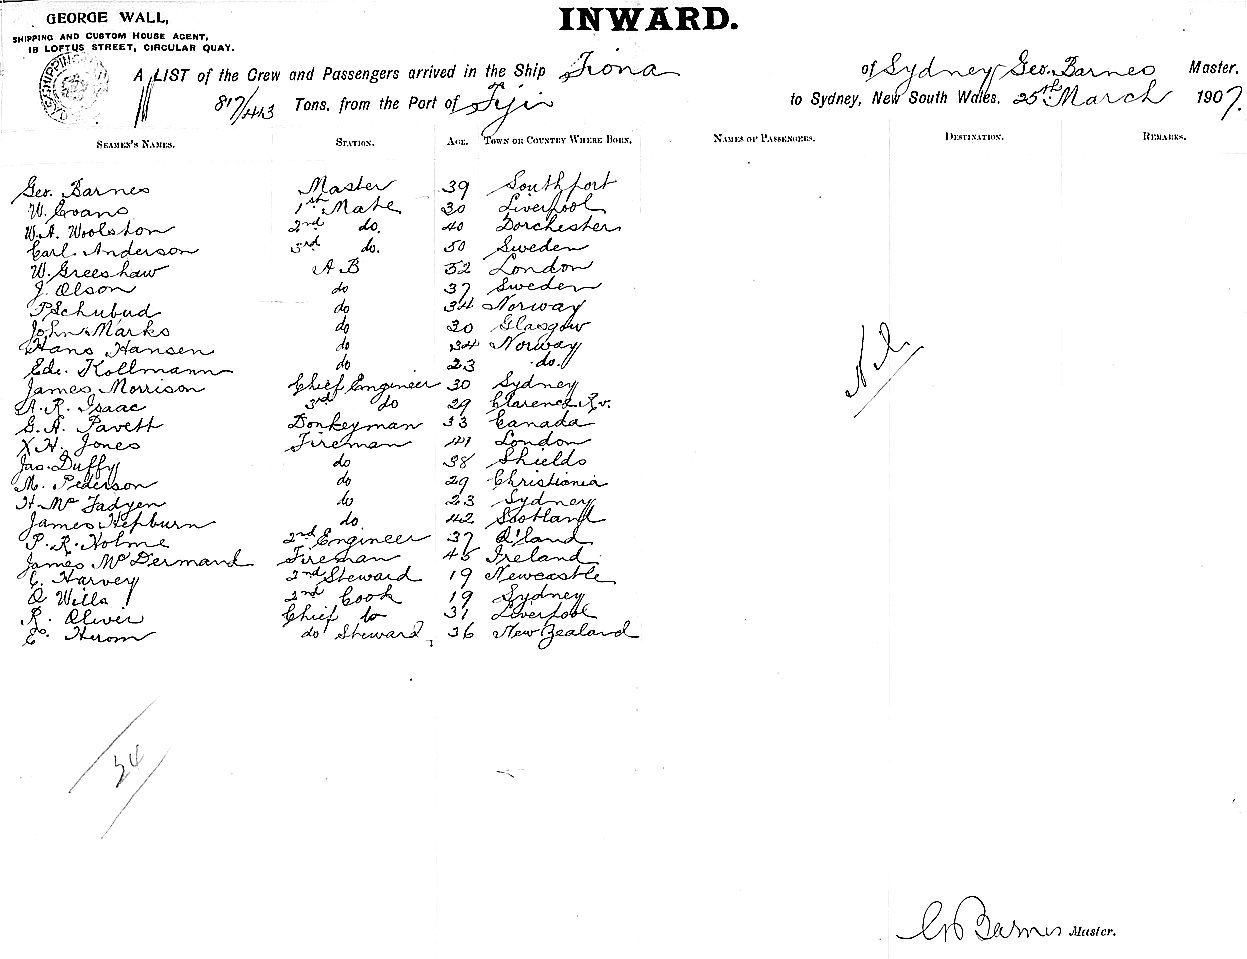 GEORGE WALL,
SHIPPING AND CUSTOM HOUSE AGENT,
18 LOFTUS STREET, CIRCULAR QUAY.
INWARD.
A LIST of the Crew and Passengers arrived in the Ship Fiona of Sydney Geo. Barnes Master.
817/443 Tons. from the Port of Fiji to Sydney, New South Wales. 25th March 1907.
SEAMEN'S NAMES. STATION. AGE. TOWN OR COUNTRY WHERE BORN. NAMES OF PASSENGERS. DESTINATION. REMARKS.
Geo. Barnes Master 39 Southport
W. Evans 1st Mate 30 Liverpool
W. A. Woolston 2nd do. 40 Dorchester
Carl. Anderson 3rd do. 50 Sweden
W. Greeshaw A B 52 London
J. Olson do 37 Sweden
P Schubud do 34 Norway
John Marks do 30 Glasgow
Hans Hansen do 34 Norway
Ed. Kollmann do 23 do.
James Morrison Chief Engineer 30 Sydney
A. R. Isaac 3rd do 29 Clarence Rv.
G. A. Pavett Donkeyman 33 Canada
X H. Jones Fireman 41 London
Jas. Duffy do 38 Shields
M. Pederson do 29 Christiania
H. McFadyen do 23 Sydney
James Hepburn do 42 Scotland
P. R. Holme 2nd Engineer 37 Q'land
James McDermand Fireman 45 Ireland
C. Harvey 2nd Steward 19 Newcastle
A Wills 2nd Cook 19 Sydney
R. Oliver Chief do 31 Liverpool
E. Hirom do Steward, 36 New Zealand
Nil
24
G Barnes Master.